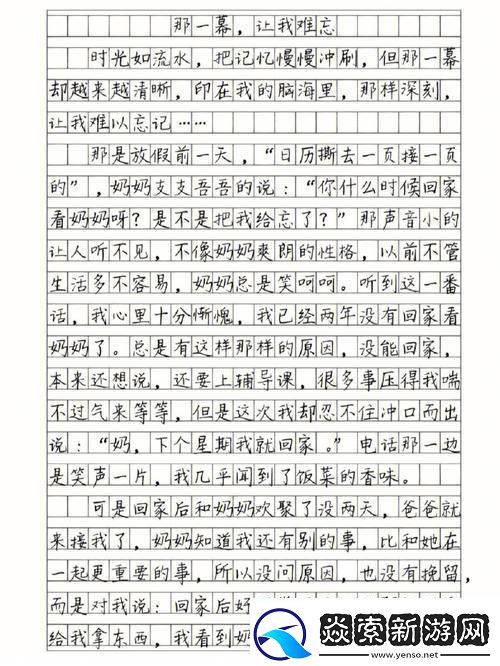 那一幕，让我难忘
时光如流水，把记忆慢慢冲刷，但那一幕
却越来越清晰，印在我的脑海里，那样深刻，
让我难以忘记……
那是放假前一天，“日历撕去一页接一页
的”，妈妈支支吾吾的说：“你什么时候回家
看妈妈呀？是不是把我给忘了？”那声音小的
让人听不见，不像妈妈爽朗的性格，以前不管
生活多不容易，妈妈总是笑呵呵。听到这一番
话，我心里十分惭愧，我已经两年没有回家看
妈妈了。总是有这样那样的原因，没能回家，
本来还想说，还要上辅导课，很多事压得我喘
不过气来等等，但是这次我却忍不住冲口而出
说：“妈，下个星期我就回家。”电话那一边
是笑声一片，我几乎闻到了饭菜的香味。
可是回家后和妈妈欢聚了没两天，爸爸就
来接我了，妈妈知道我还有别的事，比和她在
一起更重要的事，所以没问原因，也没有挽留，
而是对我说：回家后好
给我拿东西，我看到妈
焱索新游网
www.yenso.net